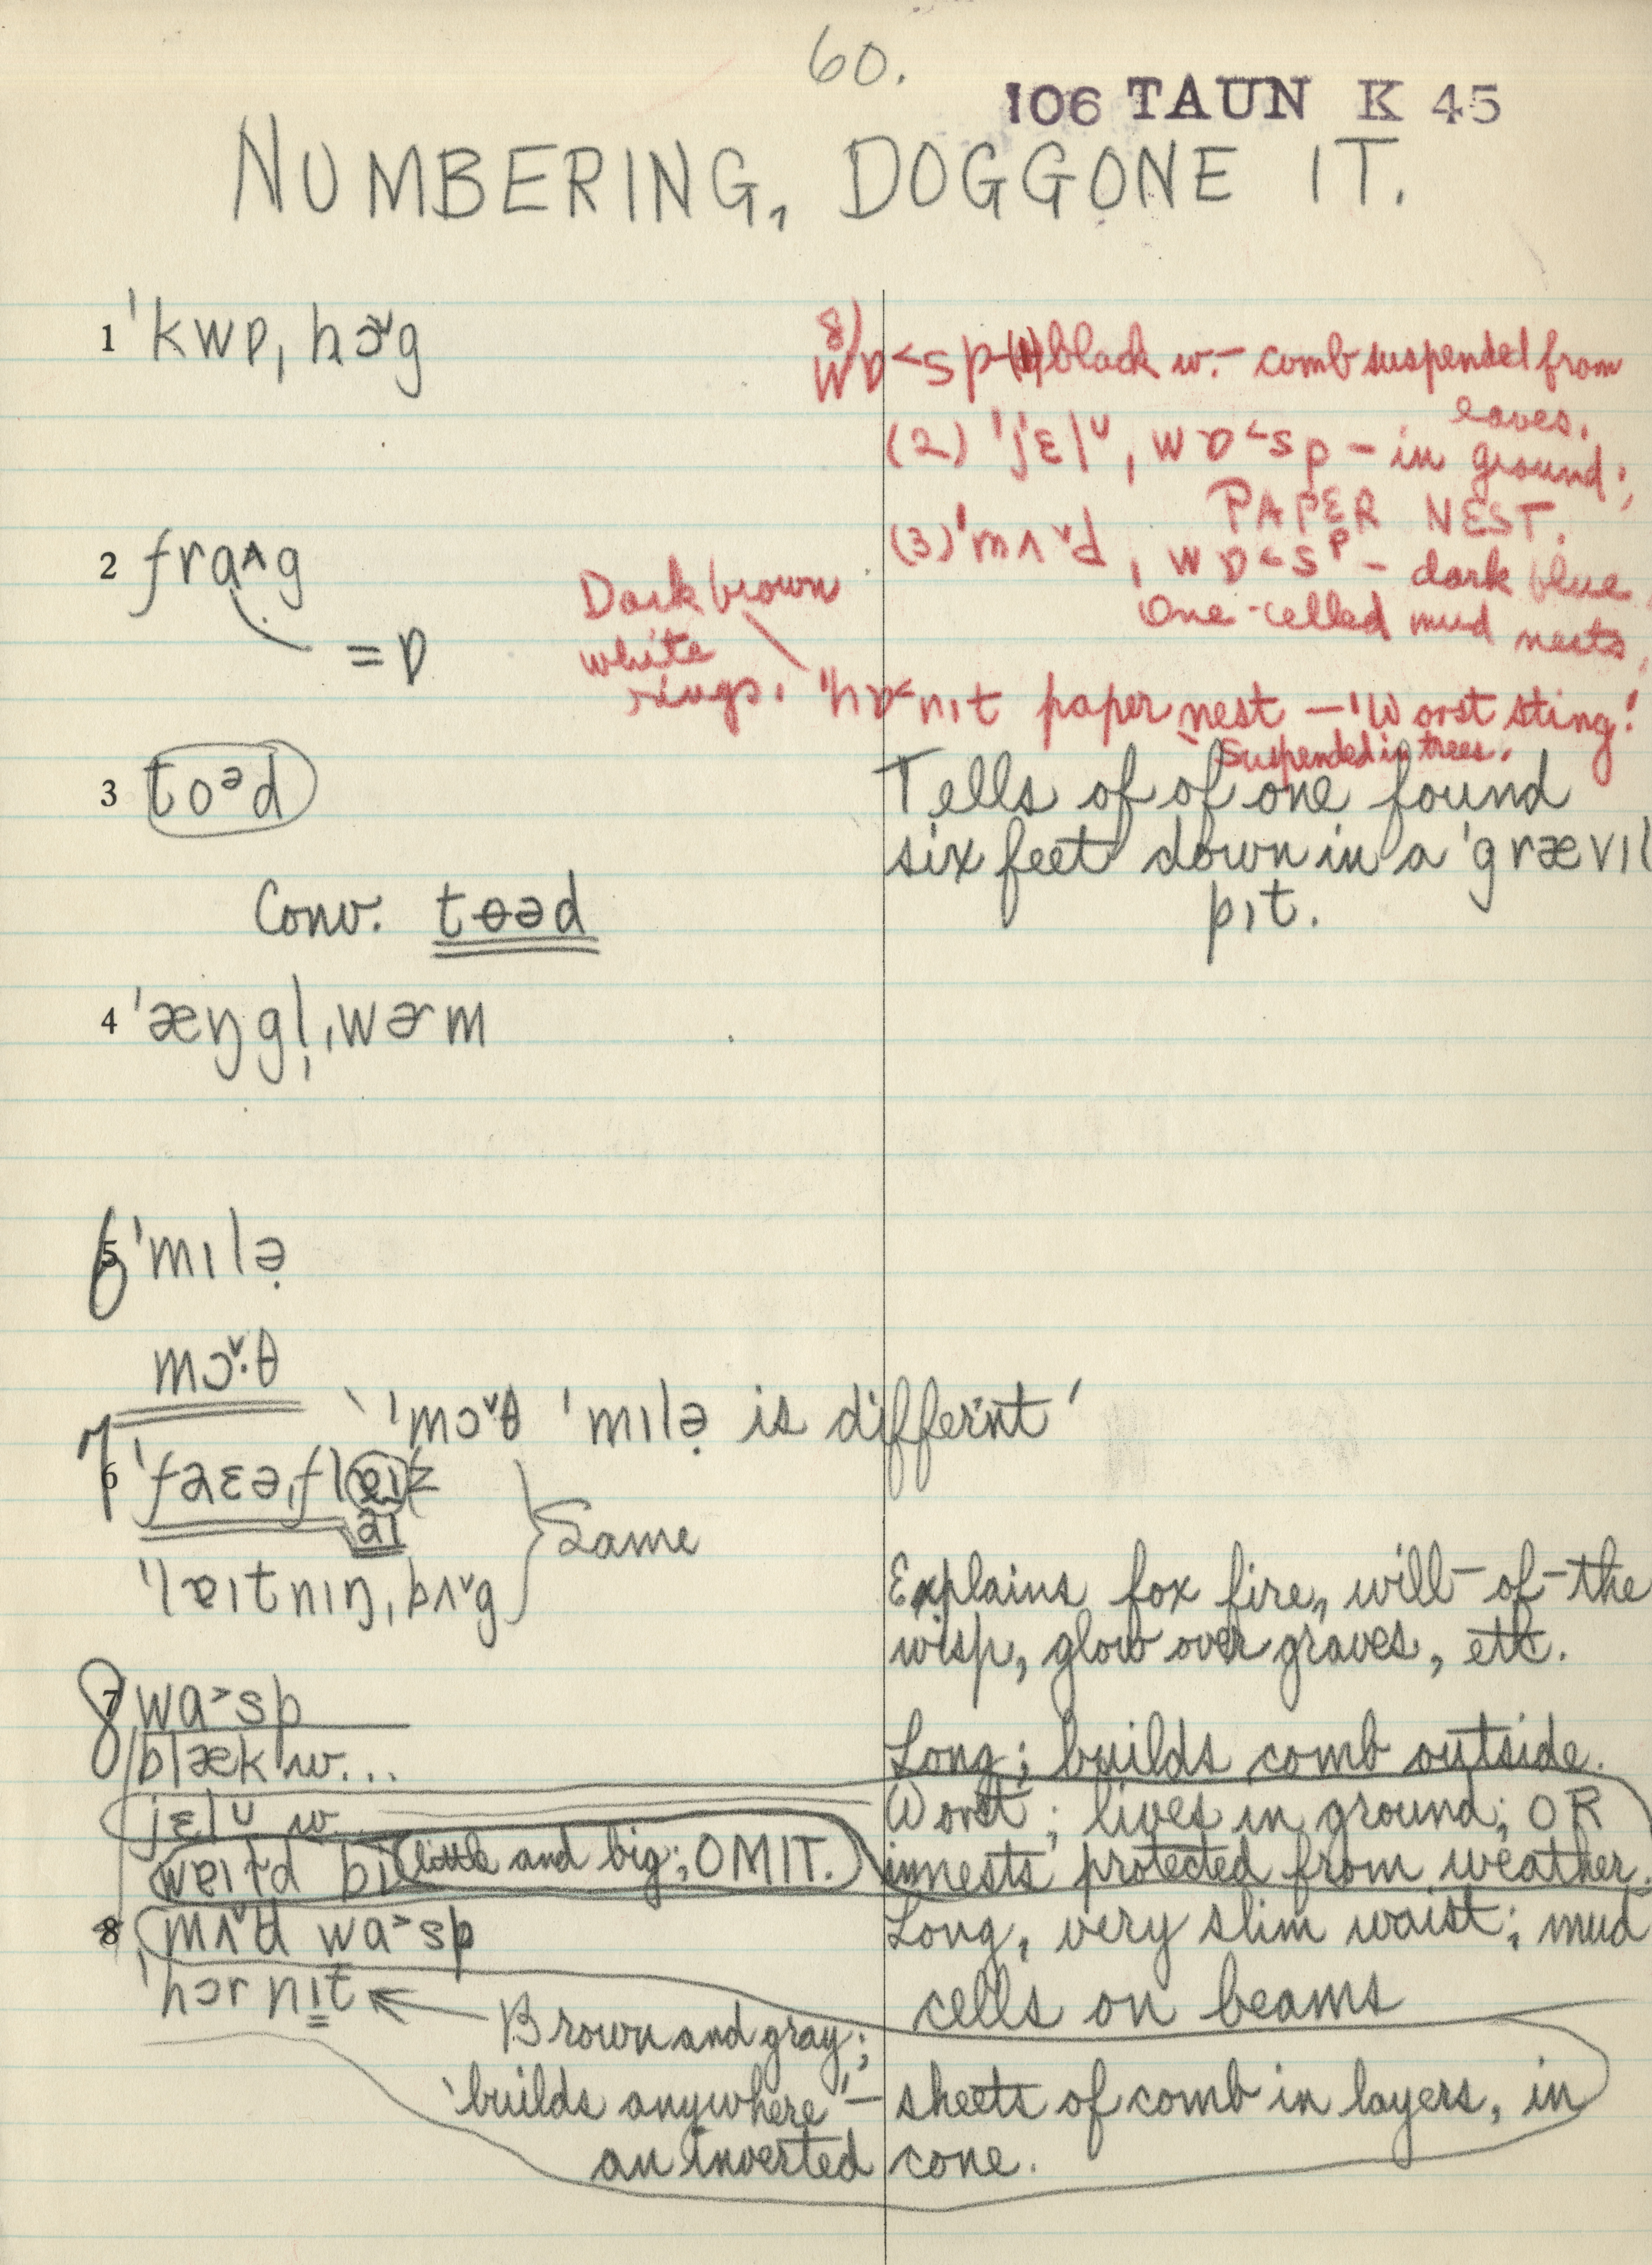 60.
106 TAUN K 45
NUMBERING, DOGGONE IT.
1 ˈkwɒˌhɔ˅g
8)
wɒ˂sp-(1) black w. – comb suspended from
eaves.
(2) ˈjɛlᴜˌwɒ˂sp – in ground;
PAPER NEST.
(3) ˈmʌ˅dˌwɒ˂sp – dark blue
One-celled mud nests,
2 frɑʌg
= ɒ
Dark brown
white
rings.
ˈhɒ˂nɪt paper nest – 'Worst sting!'
Suspended in trees.
3 toəd
Tells of of one found
six feet down in a ˈgrævɪl
pɪt.
Conv. tɵəd
4 ˈæŋgl̩ˌwɚm
5 6 ˈmɪlə̣
mɔ˅·θ
' ˈmɔ˅θ ˈmɪlə̣ is differnt '
6 7 ˈfaɛəˌflɐɪz
aɪ
ˈlɐɪtnɪŋˌbʌ˅g
Same
Explains fox fire, will-of-the
wisp, glow over graves, etc.
7 8 wɑ˃sp
blæk w...
Long; builds comb outside.
jɛlᴜ w.
Worst; lives in ground; OR
little and big; OMIT.
in nests protected from weather.
8 mʌ˅d wɑ˃sp
Long, very slim waist; mud
cells on beams
ˈhɔrnɪt
Brown and gray;
'builds anywhere' – sheets of comb in layers, in
an inverted cone.